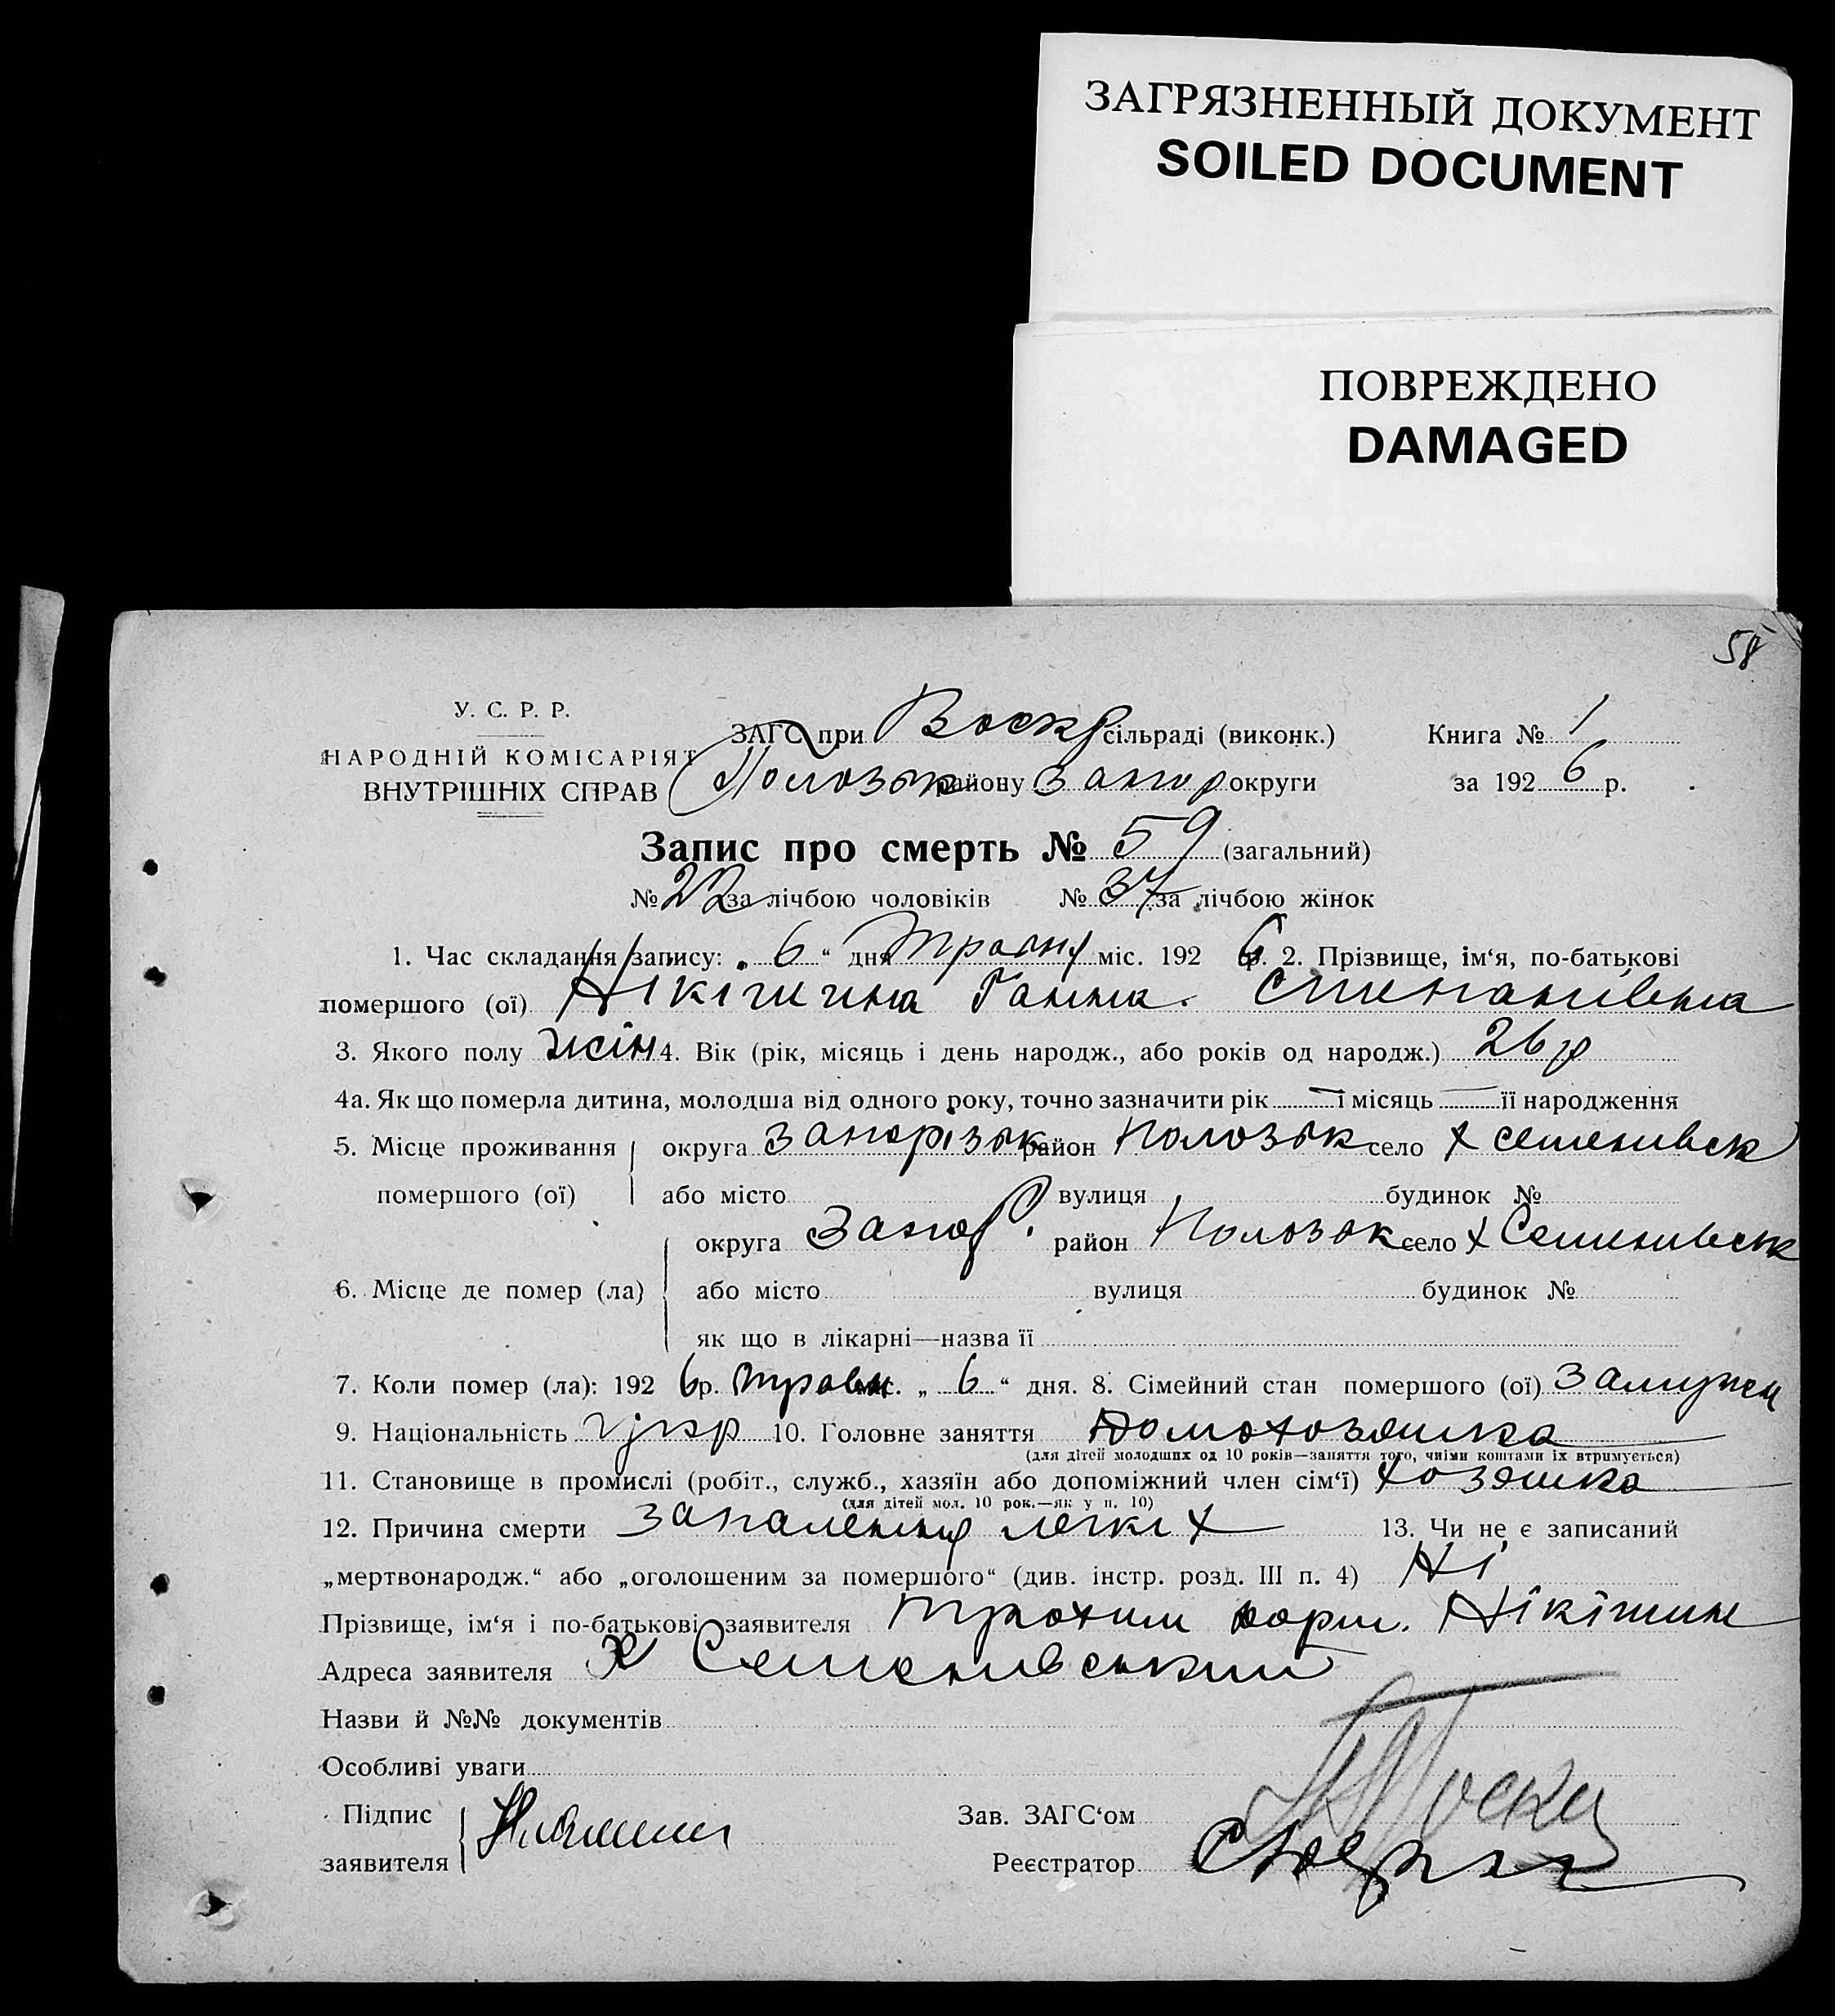 ЗАГРЯЗНЕННЫЙ ДОКУМЕНТ
SOILED DOCUMENT
ПОВРЕЖДЕНО
DAMAGED
58
У. С. Р. Р.
НАРОДНІЙ КОМІСАРІЯТ
ВНУТРІШНІХ СПРАВ
ЗАГС при Воскр сільраді (виконк.) Книга № 1
Пологзьк району Запор округи за 1926 р.
Запис про смерть № 59 (загальний)
№ 22 за лічбою чоловіків № 37 за лічбою жінок
1. Час складання запису: „ 6 “ дня травня міс. 192 6 р. 2. Прізвище, ім‘я, по-батькові
помершого (ої) Нікітина Ганна. Степанівна
3. Якого полу жін 4. Вік (рік, місяць і день народж., або років од народж.) 26 р
4а. Як що померла дитина, молодша від одного року, точно зазначити рік — і місяць — її народження
5. Місце проживання округа Запорізьк район Полозьк село х Семенивськ
помершого (ої) або місто вулиця будинок №
округа Запор. район Полозьк село х Семенивськ
6. Місце де помер (ла) або місто вулиця будинок №
як що в лікарні—назва її
7. Коли помер (ла): 192 6 р. травн міс. „ 6 “ дня. 8. Сімейний стан помершого (ої) Замужн
9. Національність Укр 10. Головне заняття домохозяйка
(для дітей молодших од 10 років—заняття того, чиїми коштами їх втримується)
11. Становище в промислі (робіт., служб., хазяїн або допоміжний член сім‘ї) хозяйка
(для дітей мол. 10 рок.—як у п. 10)
12. Причина смерти запалення легких 13. Чи не є записаний
„мертвонародж.“ або „оголошеним за помершого“ (див. інстр. розд. III п. 4) Ні
Прізвище, ім‘я і по-батькові заявителя Трохим Нікітин
Адреса заявителя Х Семенивський
Назви й №№ документів
Особливі уваги
Підпис
заявителя
Зав. ЗАГС‘ом
Реєстратор